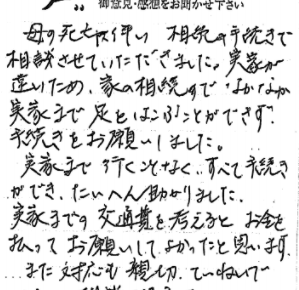 御意見・感想をお聞かせ下さい
母の死亡に伴い 相続の手続きで
相談させていただきました。実家が
遠いため、家の相続の なかなか
実家まで足をはこぶことができず
手続きをお願いしました。
実家まで行くことなく、すべて手続き
ができ、たいへん助かりました。
実家までの交通費を考えると お金を
払って お願いして よかったと思います
また 対応も 親切、ていねいで